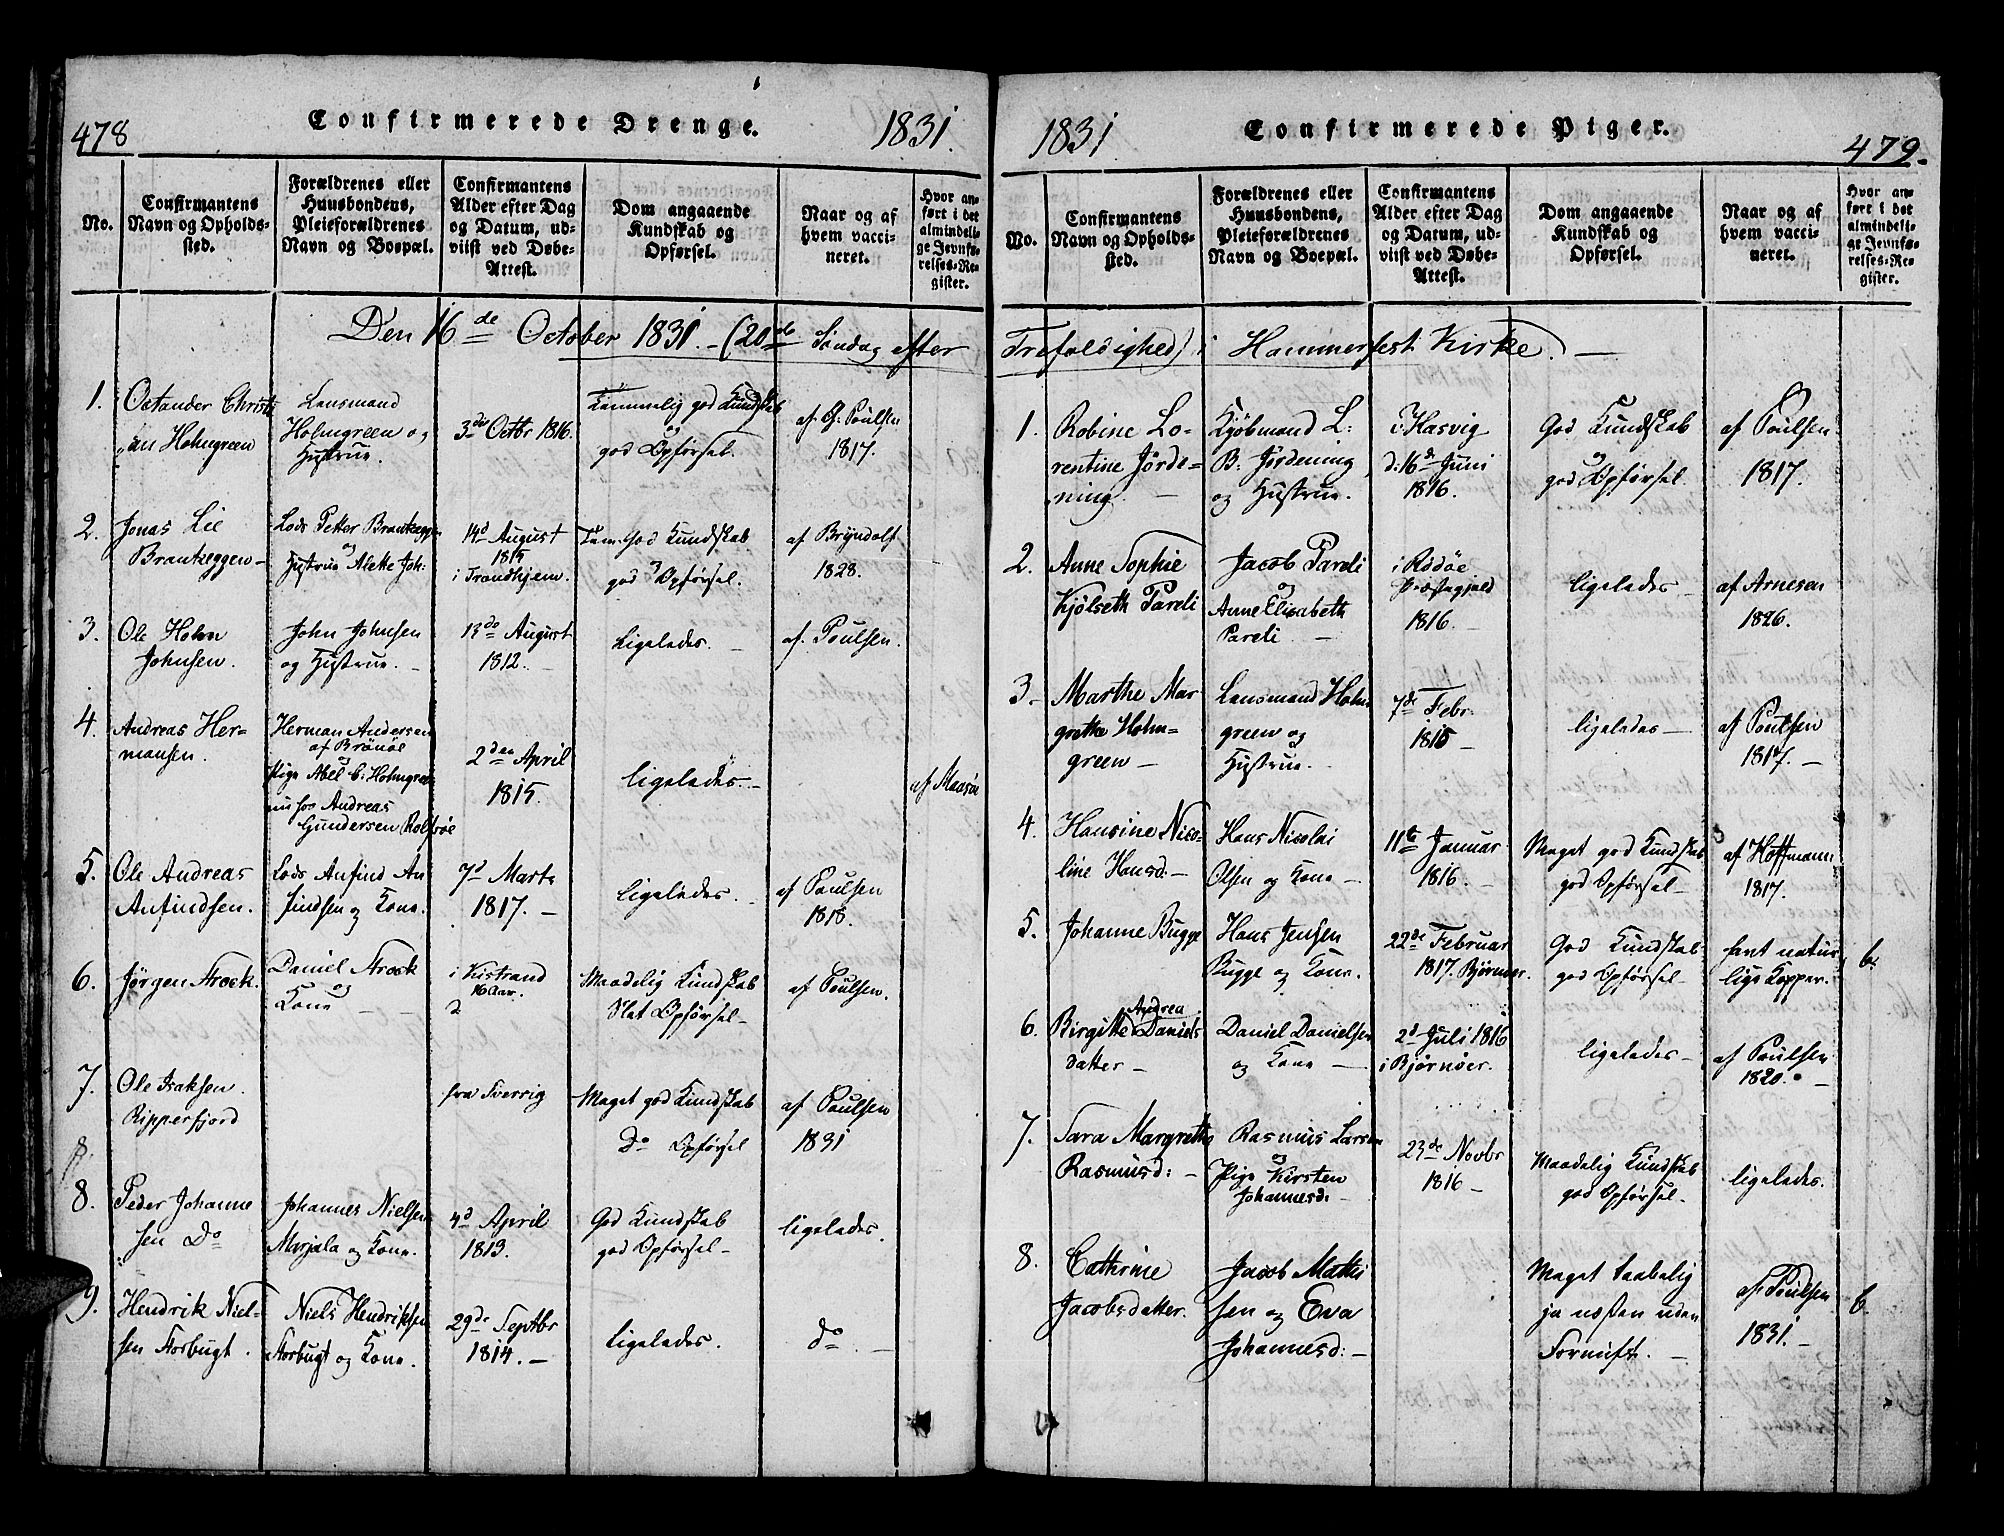 478
Confirmerede Drenge.
1831.
No.
Confirmantens Navn og Opholdssted.
Forældrenes eller Huusbondens, Pleieforældrenes Navn og Boepæl.
Confirmantens Alder efter Dag og Datum, udviist ved Døbe-Attest.
Dom angaaende Kundskab og Opførsel.
Naar og af hvem vaccineret.
Hvor anført i det almindelige Jevnførelses-Register.
Den 16de October 1831. - (20de Søndag efter
1.
Octander Christi
an Holmgreen
Lensmand
Holmgreen og
Hustrue.
3de Octbr 1816.
Temmelig god Kundskab
og
god Opførsel.
af Poulsen
1817.
2.
Jonas Lie
Branteggen
Lods Petter Branteggen
og
Hustrue Alette Joh:
14d August
1815
i Trondhjem.
Tem. God Kundskab
god Opførsel.
af Bryndolf
1828.
3.
Ole Holm
Johnsen.
John Johnsen
og Hustrue.
13de August
1812.
Ligelades.
af Poulsen.
4.
Andreas Her-
mansen.
Herman Andersen
af Brönöe
og
Pige Abel b: Holmgreen
nu hos Andreas
Gundersen Rolfsöe
2den April
1815.
ligelades.
af Maasöe
5.
Ole Andreas
Anfindsen.
Lods Anfind An
findsen og Kone.
7d Marts
1817.
ligelades.
af Poulsen
1818.
6.
Jörgen Strock.
Daniel Strock
og
Kone
i Kistrand
16 Aar.
Maadelig Kundskab
Slet Opførsel
af Poulsen.
7.
Ole Isaksen
Ripperfjord
fra Sverrig
Meget god Kundskab
Do Opførsel
af Poulsen
1831
8.
8.
Peder Johanne
sen Do
Johannes Nielsen
Marjala og Kone.
4d April
1813.
God Kundskab
god Opførsel
ligelades.
9.
Hendrik Niel-
sen Storbugt.
Niels Hendriksen
Storbugt og Kone.
29de Septbr
1814.
Ligelades.
do
1831
Confirmerede Piger.
479.
No.
Confirmantens Navn og Opholdssted.
Forældrenes eller Huusbondens, Pleieforældrenes Navn og Boepæl.
Confirmantens Alder efter Dag og Datum, udviist ved Døbe-Attest.
Dom angaaende Kundskab og Opførsel.
Naar og af hvem vaccineret.
Hvor anført i det almindelige Jevnførelses-Register.
Trefoldighed) i Hammerfest Kirke.
1.
Robine Lo-
rentine Jörde-
ning.
Kjöbmand L:
B: Jördening
og Hustrue.
i Hasvig
d: 16d Juni
1816.
God Kundskab
og
god Opførsel
af Poulsen
1817.
2.
Anne Sophie
Kjölseth Pareli
Jacob Pareli
og
Anne Elisabeth
Pareli.
i Rödöe
Præstegjeld
1816.
ligelades
af Arnesen
1826.
3.
Marthe Mar
grethe Holm-
green
Lensmand Holm
green og
Hustrue.
7de Febr
1815
ligelades
af Poulsen
1817.
4.
Hansine Nico-
line Hansd:
Hans Nicolai
Olsen og Kone
11te Januar
1816.
Meget god Kundskab
god Opførsel
af Hoffmann
1817.
5.
Johanne Bugge
Hans Jensen
Bugge og Kone.
22de Februar
1817. Björnöer.
God Kundskab
god Opførsel
havt natur
lige Kopper.
b.
6.
Andrea
Birgitte Daniels
datter
Daniel Danielsen
og Kone
2d Juli 1816
i Björnöer.
ligelades
af Poulsen
1820.
7.
Sara Margrethe
Rasmusd:
Rasmus Larsen
og
Pige Kirsten
Johannesd:
23de Novbr
1816
Maadelig Kundskab
god Opførsel
ligelades.
8.
Cathrine
Jacobsdatter.
Jacob Mathi
sen og Eva
Johannesd:
Meget taabelig
ja næsten uden
Fornuft.
af Poulsen
1831.
b.